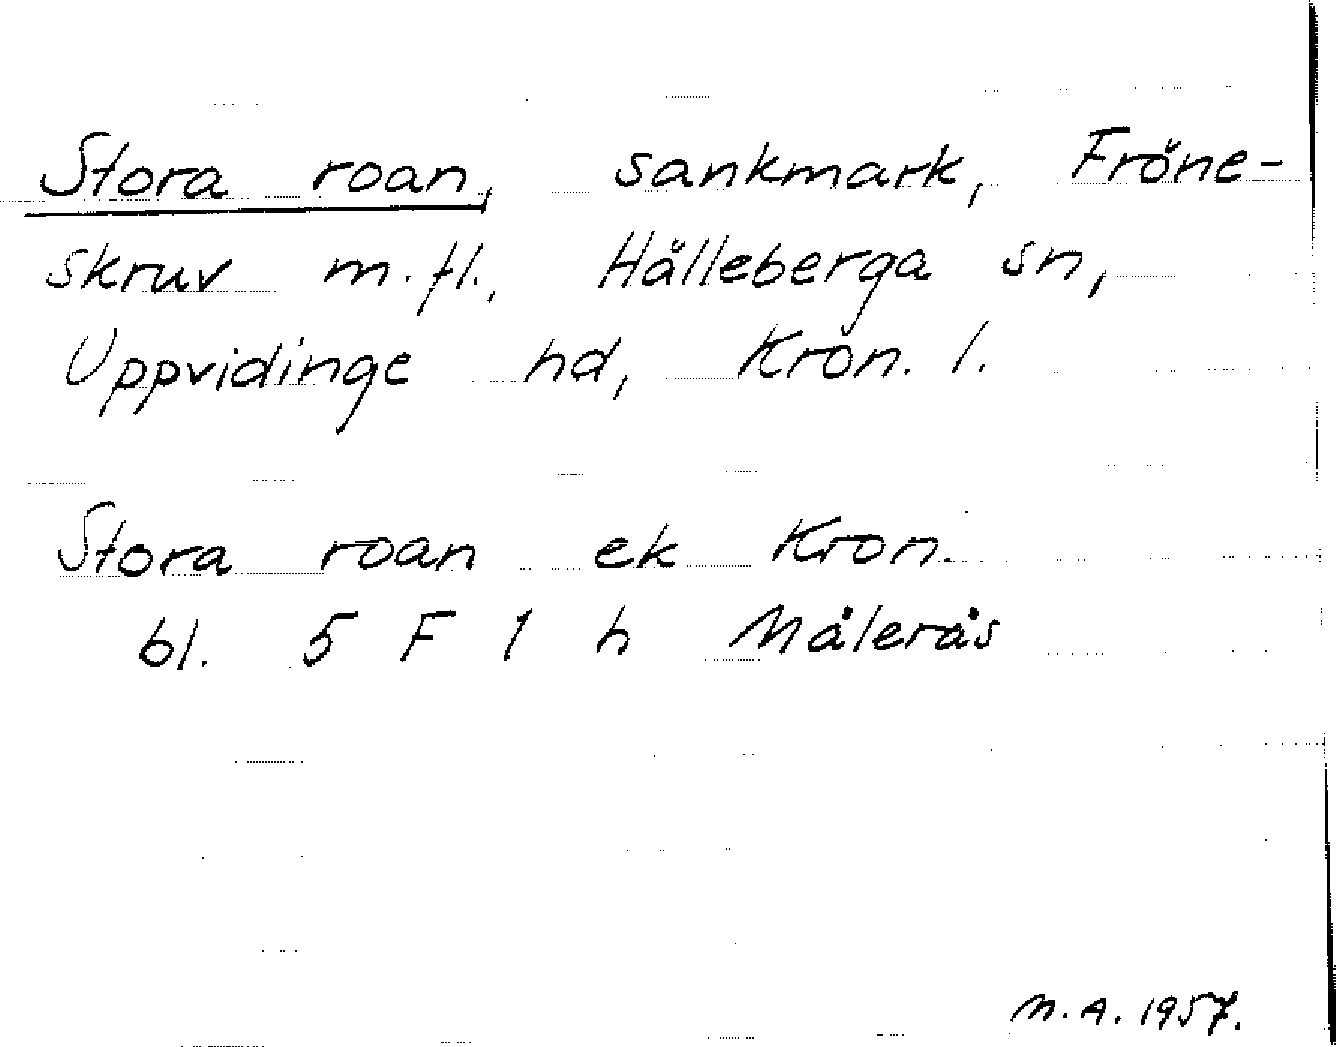 Stora roan, sankmark, Fröne-
skruv m. fl., Hälleberga sn,
Uppvidinge hd, Kron. l.
Stora roan ek Kron.
bl. 5 F 1 h Målerås
M. A. 1957.